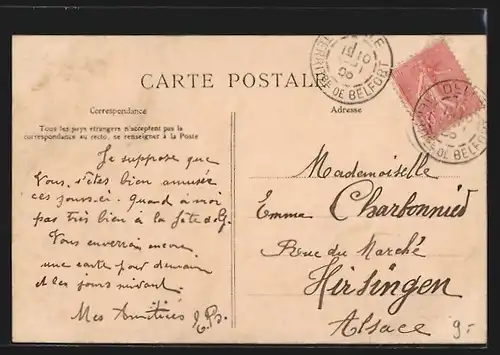 CARTE POSTALE
Correspondance
Tous les pays étrangers n'acceptent pas la
correspondance au recto, se renseigner à la Poste
Adresse
Je suppose que
Vous êtes bien amusée
ces jours-ci. Quand à moi
pas très bien à la fête de
Vous enverrai encore
une carte pour demain
et les jours suivant.
Mes Amitiés
Mademoiselle
Emma Charbonnied
Rue du Marché
Hirsingen
Alsace
9.-
TERRITRE DE BELFORT
DE BELFORT